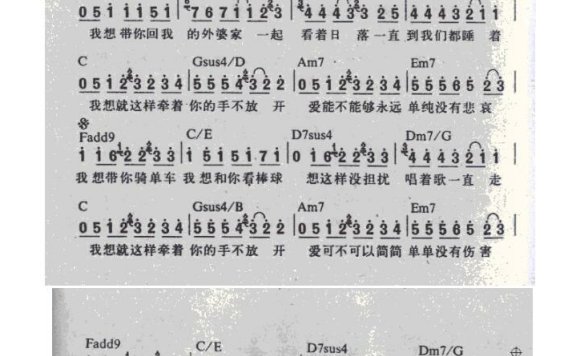 0 5 1 1 1 5 1 | 7 6 7 1 1 2 3 | 4 4 4 3 2 5 | 4 4 4 3 2 1 1
我想带你回我 的外婆家 一起 看着日 落一直 到我们都睡 着
C Gsus4/D Am7 Em7
0 5 1 2 3 2 3 4 | 5 5 5 4 3 2 2 | 0 5 1 2 3 2 3 4 | 5 5 5 6 5 2 3
我想就这样牵着 你的手不放 开 爱能不能够永远 单纯没有悲 哀
Fadd9 C/E D7sus4 Dm7/G
1 1 6 2 2 3 3 | 1 5 1 5 1 7 1 | 0 1 6 2 2 3 3 | 4 4 4 3 2 1 1
我想带你骑单车 我想和你看棒球 想这样没担扰 唱着歌一直 走
C Gsus4/B Am7 Em7
0 5 1 2 3 2 3 4 | 5 5 5 4 3 2 2 | 0 5 1 2 3 2 3 4 | 5 5 5 6 5 2 3
我想就这样牵着 你的手不放 开 爱可不可以简简 单单没有伤 害
Fadd9 C/E D7sus4 Dm7/G